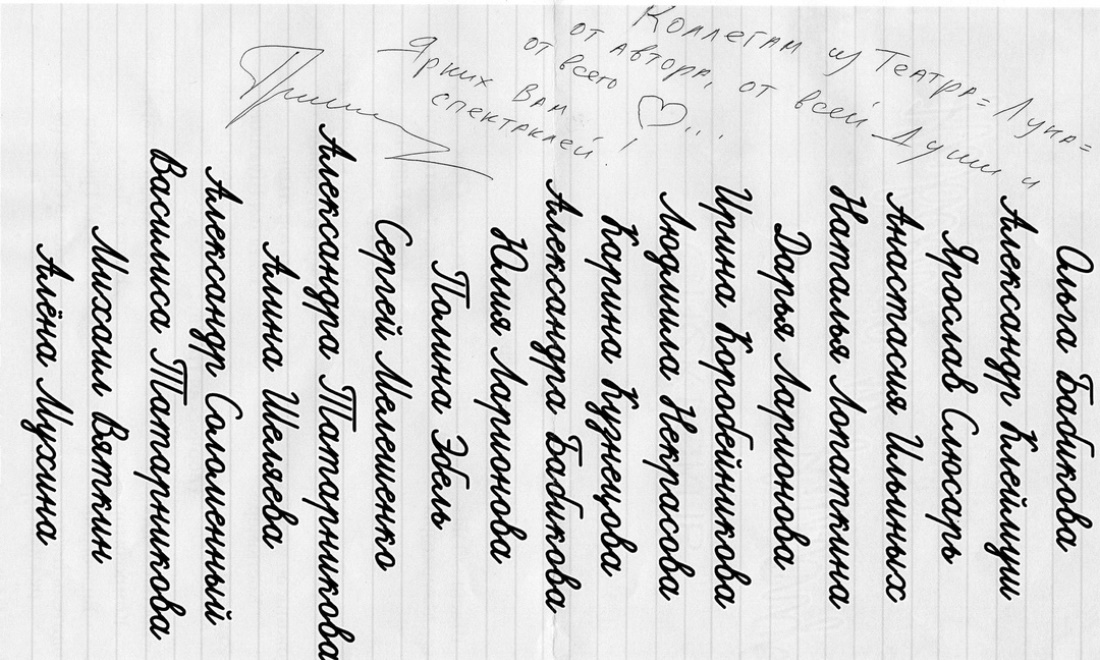 Коллегам из Театра=Луна=
от автора, от всей Души и
от всего ♡...
Ярких Вам
спектаклей!
Ольга Бабикова
Александр
Ярослав Слюсарь
Анастасия Ильиных
Наталья Лопаткина
Дарья Ларионова
Ирина Коробейникова
Людмила Некрасова
Карина Кузнецова
Александра Бабикова
Юлия Ларионова
Полина Эбель
Сергей Мелешенко
Александра Татарникова
Алина Шеляева
Александр Соломенный
Василиса Татарникова
Михаил Вяткин
Алёна Мухина